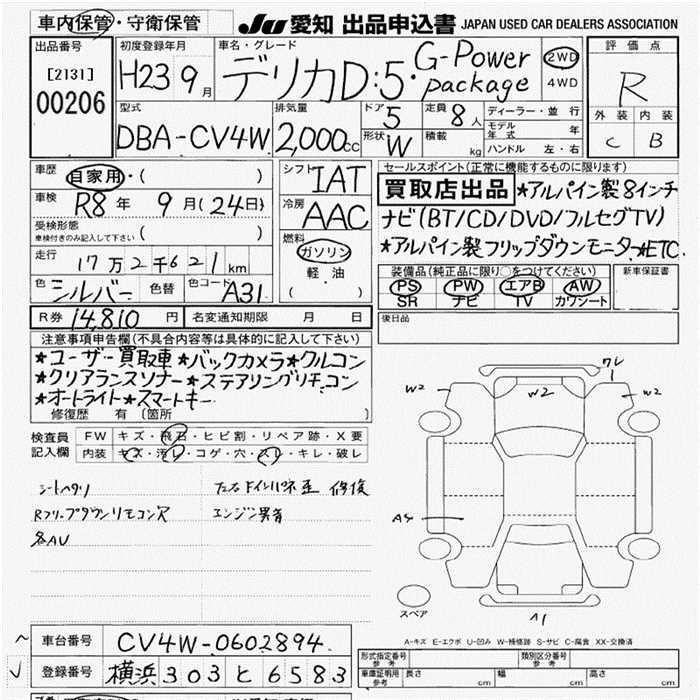 車内保管・守衛保管
JU 愛知 出品申込書 JAPAN USED CAR DEALERS ASSOCIATION
出品番号
[2131]
00206
初度登録年月
H23 9月
車名・グレード
デリカD:5・G-Power package
2WD
4WD
評価点
R
外装 内装
C B
型式
DBA-CV4W
排気量
2,000cc
ドア
5
形状
W
定員
8人
積載
kg
ディーラー・並行
モデル年式 年
ハンドル 左・右
車歴
自家用・( )
車検
R8年 9月(24日)
受検形態
車検付きのみ記入して下さい ( )
走行
17万2千621km
色 シルバー 色替 色コード A31
シフト
IAT
冷房
AAC
燃料
ガソリン
軽・油
( )
R券 14,810円 名変通知期限 月 日
セールスポイント(正常に機能するものに限ります)
買取店出品 ★アルパイン製8インチ
ナビ(BT/CD/DVD/フルセグTV)
★アルパイン製フリップダウンモニター★ETC
装備品(純正品に限り○をつけてください)
PS PW エアB AW
SR ナビ TV カワシート
新車保証書
後日品
注意事項申告欄(不具合内容等は具体的に記入して下さい)
★ユーザー買取車★バックカメラ★クルコン
★クリアランスソナー★ステアリングリモコン
★オートライト★スマートキー
修復歴 有 〔箇所 〕
検査員記入欄
FW キズ・飛石・ヒビ割・リペア跡・X要
内装 キズ・汚レ・コゲ・穴・スレ・キレ・破レ
シートヘタリ
Rフリップダウンリモコン欠
社外AV
修復
エンジン異音
ワレ
W2
W2
W2
A1
スペア
A-キズ E-エクボ U-凹み W-補修跡 S-サビ C-腐食 XX-交換済
車台番号 CV4W-0602894
登録番号 横浜303と6583
形式指定番号 参考
類別区分番号 参考
車庫証明用 参考 長さ cm 幅 cm 高さ cm